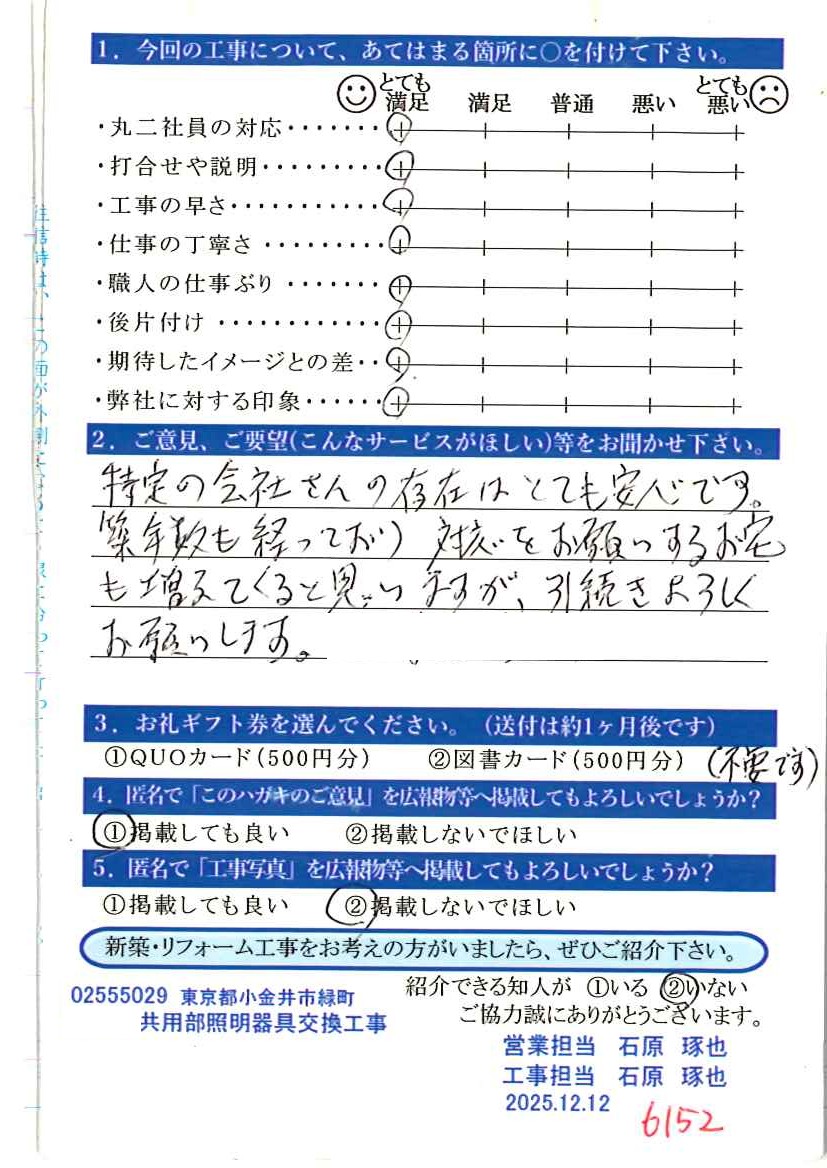 1．今回の工事について、あてはまる箇所に○を付けて下さい。
とても満足 満足 普通 悪い とても悪い
・丸二社員の対応・・・・・・・
・打合せや説明・・・・・・・・・
・工事の早さ・・・・・・・・・・・
・仕事の丁寧さ・・・・・・・・・
・職人の仕事ぶり・・・・・・・
・後片付け・・・・・・・・・・・・
・期待したイメージとの差・・
・弊社に対する印象・・・・・・
2．ご意見、ご要望(こんなサービスがほしい)等をお聞かせ下さい。
特定の会社さんの存在はとても安心です。
築年数も経っており 対応をお願いするお宅
も増えてくると思いますが、引続きよろしく
お願いします。
3．お礼ギフト券を選んでください。（送付は約1ヶ月後です）
①QUOカード(500円分) ②図書カード(500円分) (不要です)
4．匿名で「このハガキのご意見」を広報物等へ掲載してもよろしいでしょうか?
①掲載しても良い ②掲載しないでほしい
5．匿名で「工事写真」を広報物等へ掲載してもよろしいでしょうか?
①掲載しても良い ②掲載しないでほしい
新築・リフォーム工事をお考えの方がいましたら、ぜひご紹介下さい。
紹介できる知人が ①いる ②いない
ご協力誠にありがとうございます。
02555029 東京都小金井市緑町
共用部照明器具交換工事
営業担当 石原 琢也
工事担当 石原 琢也
2025.12.12
6152